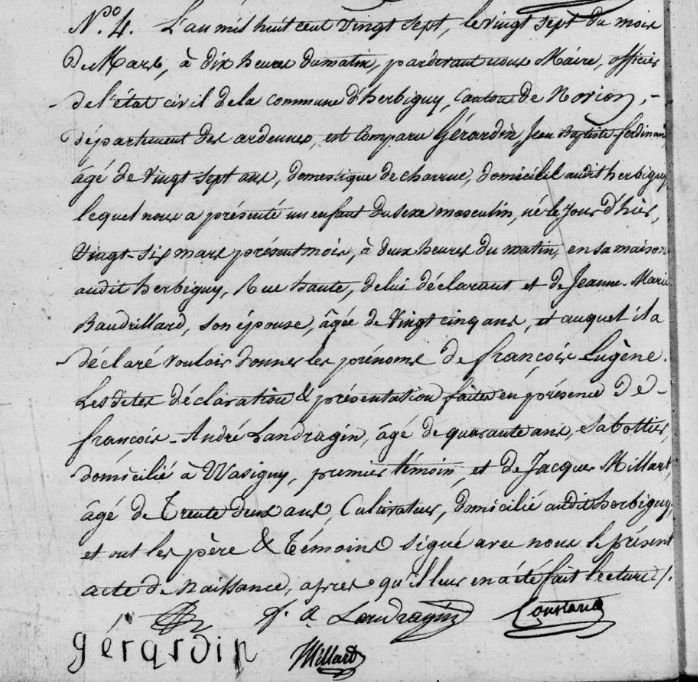 N.º 4. L'an mil huit cent vingt sept, le vingt sept du mois
de Mars, à dix heures du matin, pardevant nous Maire, officier
de l'état civil de la commune d'herbigny, Canton de Novion,
département des ardennes, est comparu Gérardin, Jean Baptiste ferdinand
âgé de vingt sept ans, domestique de charrue, domicilié audit herbigny
lequel nous a présenté un enfant du sexe masculin, né le jour d'hier,
vingt-six mars présent mois, à deux heures du matin, en sa maison
audit herbigny, Rue haute, de lui déclarant et de Jeanne-Marie
Baudrillard, son épouse, âgée de vingt cinq ans, et auquel il a
déclaré vouloir donner les prénoms de françois Eugène.
Lesdites déclaration & présentation faites en présence de
françois-André Landragin, âgé de quarante ans, Sabottier,
domicilié à Wasigny, premier témoin, et de Jacques Millart,
âgé de Trente deux ans, Cultivateur, domicilié audit herbigny,
et ont les père & témoins signé avec nous le présent
acte de Naissance, après qu'il leur en a été fait lecture /.
f. a Landragin
gérardin Millart